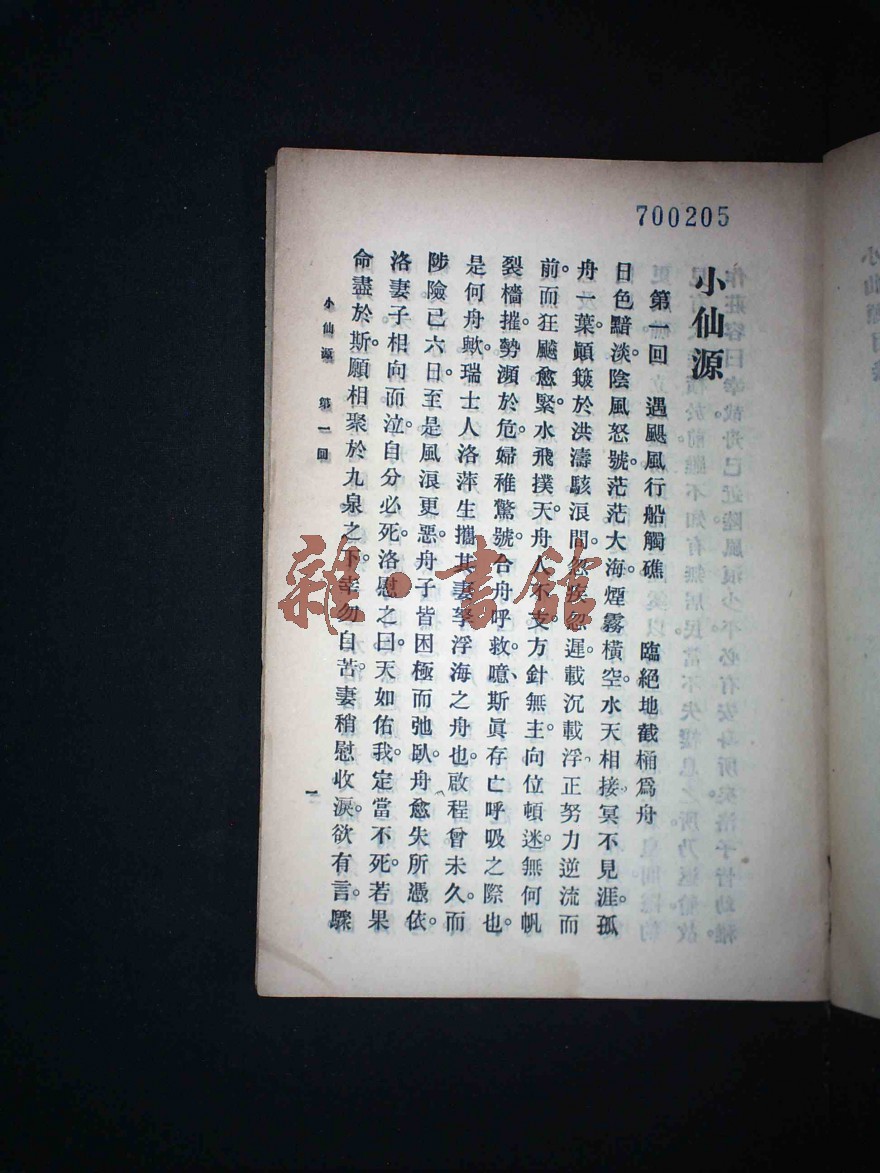 700205
小仙源
第一回　遇颶風行船觸礁　臨絕地截桶爲舟
日色黯淡。陰風怒號。茫茫大海。煙霧橫空。水天相接。冥不見涯。孤
舟一葉。顚簸於洪濤駭浪間。忽疾忽遲。載沉載浮。正努力逆流而
前。而狂飈愈緊。水飛撲天。舟人不支。方針無主。向位頓迷。無何帆
裂檣摧。勢瀕於危。婦稚驚號。合舟呼救。噫、斯眞存亡呼吸之際也。
是何舟歟。瑞士人洛萍生攜其妻孥浮海之舟也。啟程曾未久。而
陟險已六日。至是風浪更惡。舟子皆困極而弛臥。舟愈失所憑依。
洛妻子相向而泣。自分必死。洛慰之曰。天如佑我。定當不死。若果
命盡於斯。願相聚於九泉之下。幸勿自苦。妻稍慰收淚。欲有言。驟
小仙源　第一回
一
雜·書館